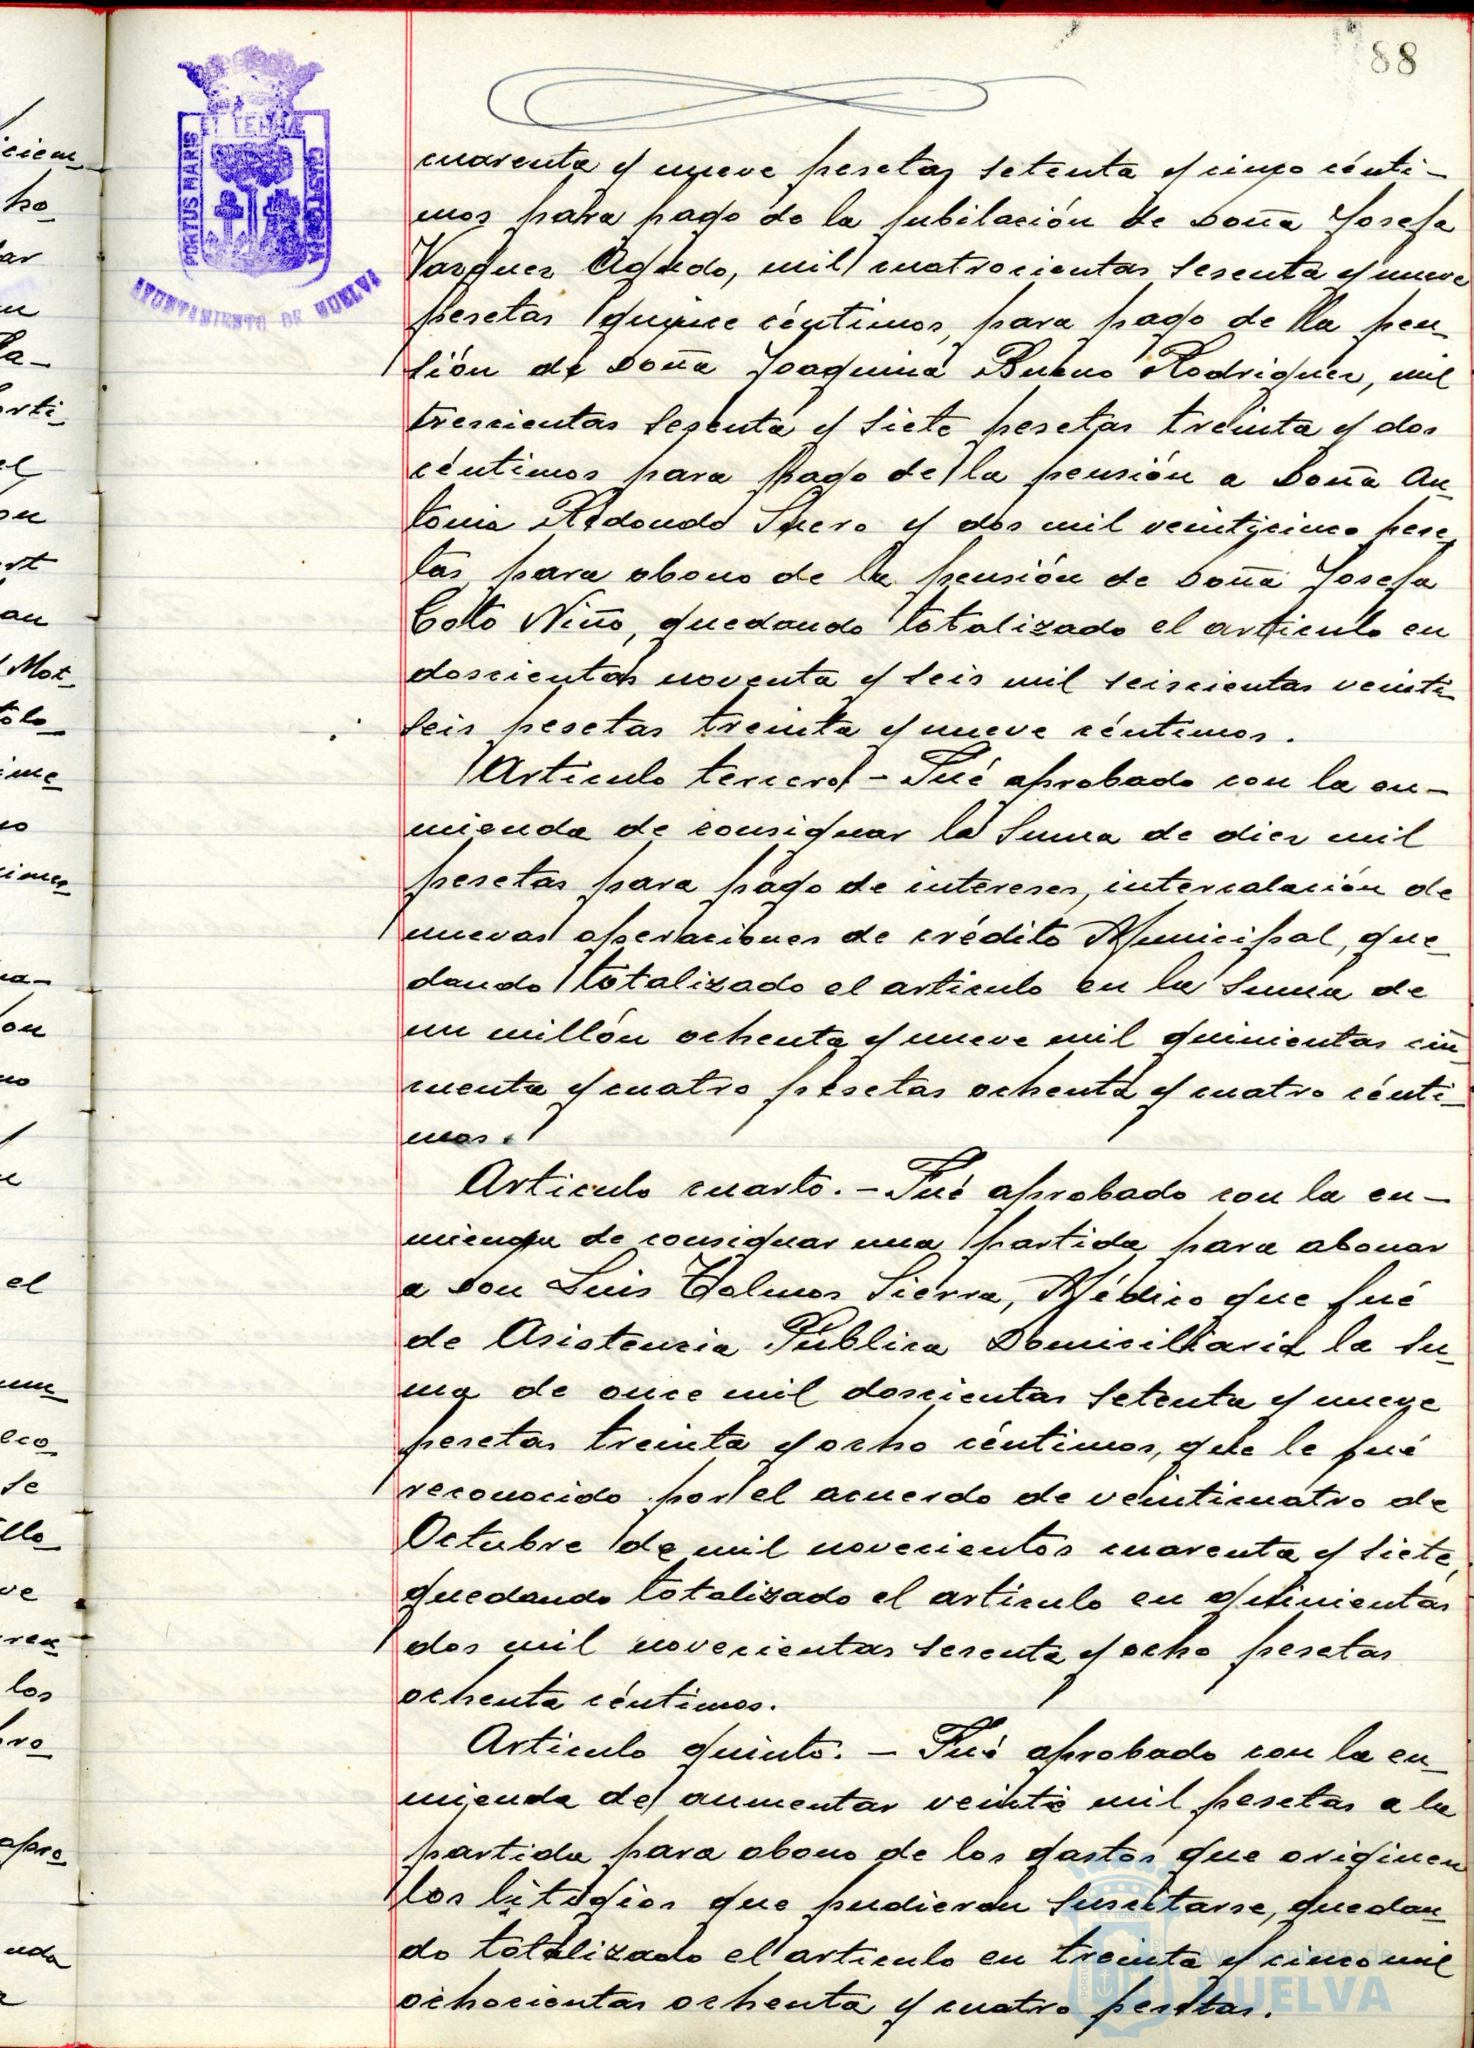 88
PORTUS MARIS
ET TERRAE
CUSTODIA
AYUNTAMIENTO DE HUELVA
cuarenta y nueve pesetas setenta y cinco cénti-
mos para pago de la jubilación de Doña Josefa
Vazquez Agudo, mil cuatrocientas sesenta y nueve
pesetas quince céntimos, para pago de la pen-
sión de Doña Joaquina Bueno Rodriguez, mil
trescientas sesenta y siete pesetas treinta y dos
céntimos para pago de la pensión a Doña An-
tonia Redondo Suero y dos mil veinticinco pese-
tas, para abono de la pensión de Doña Josefa
Coto Niño, quedando totalizado el articulo en
doscientas noventa y seis mil seiscientas veinti
seis pesetas treinta y nueve céntimos.
Articulo tercero - Fué aprobado con la en-
mienda de consignar la suma de diez mil
pesetas para pago de intereses, intercalación de
nuevas operaciones de crédito Municipal, que-
dando totalizado el articulo en la suma de
un millón ochenta y nueve mil quinientas cin-
cuenta y cuatro pesetas ochenta y cuatro cénti-
mos.
Articulo cuarto. - Fué aprobado con la en-
mienda de consignar una partida para abonar
a Don Luis Tolmos Sierra, Médico que fué
de Asistencia Pública Domiciliaria la su-
ma de once mil doscientas setenta y nueve
pesetas treinta y ocho céntimos, que le fué
reconocido por el acuerdo de veinticuatro de
Octubre de mil novecientos cuarenta y siete,
quedando totalizado el articulo en quinientas
dos mil novecientas sesenta y ocho pesetas
ochenta céntimos.
Articulo quinto. - Fué aprobado con la en-
mienda de aumentar veinte mil pesetas a la
partida para abono de los gastos que originen
los litigios que pudieran suscitarse, quedan-
do totalizado el articulo en treinta y cinco mil
ochocientas ochenta y cuatro pesetas.
Ayuntamiento de
HUELVA